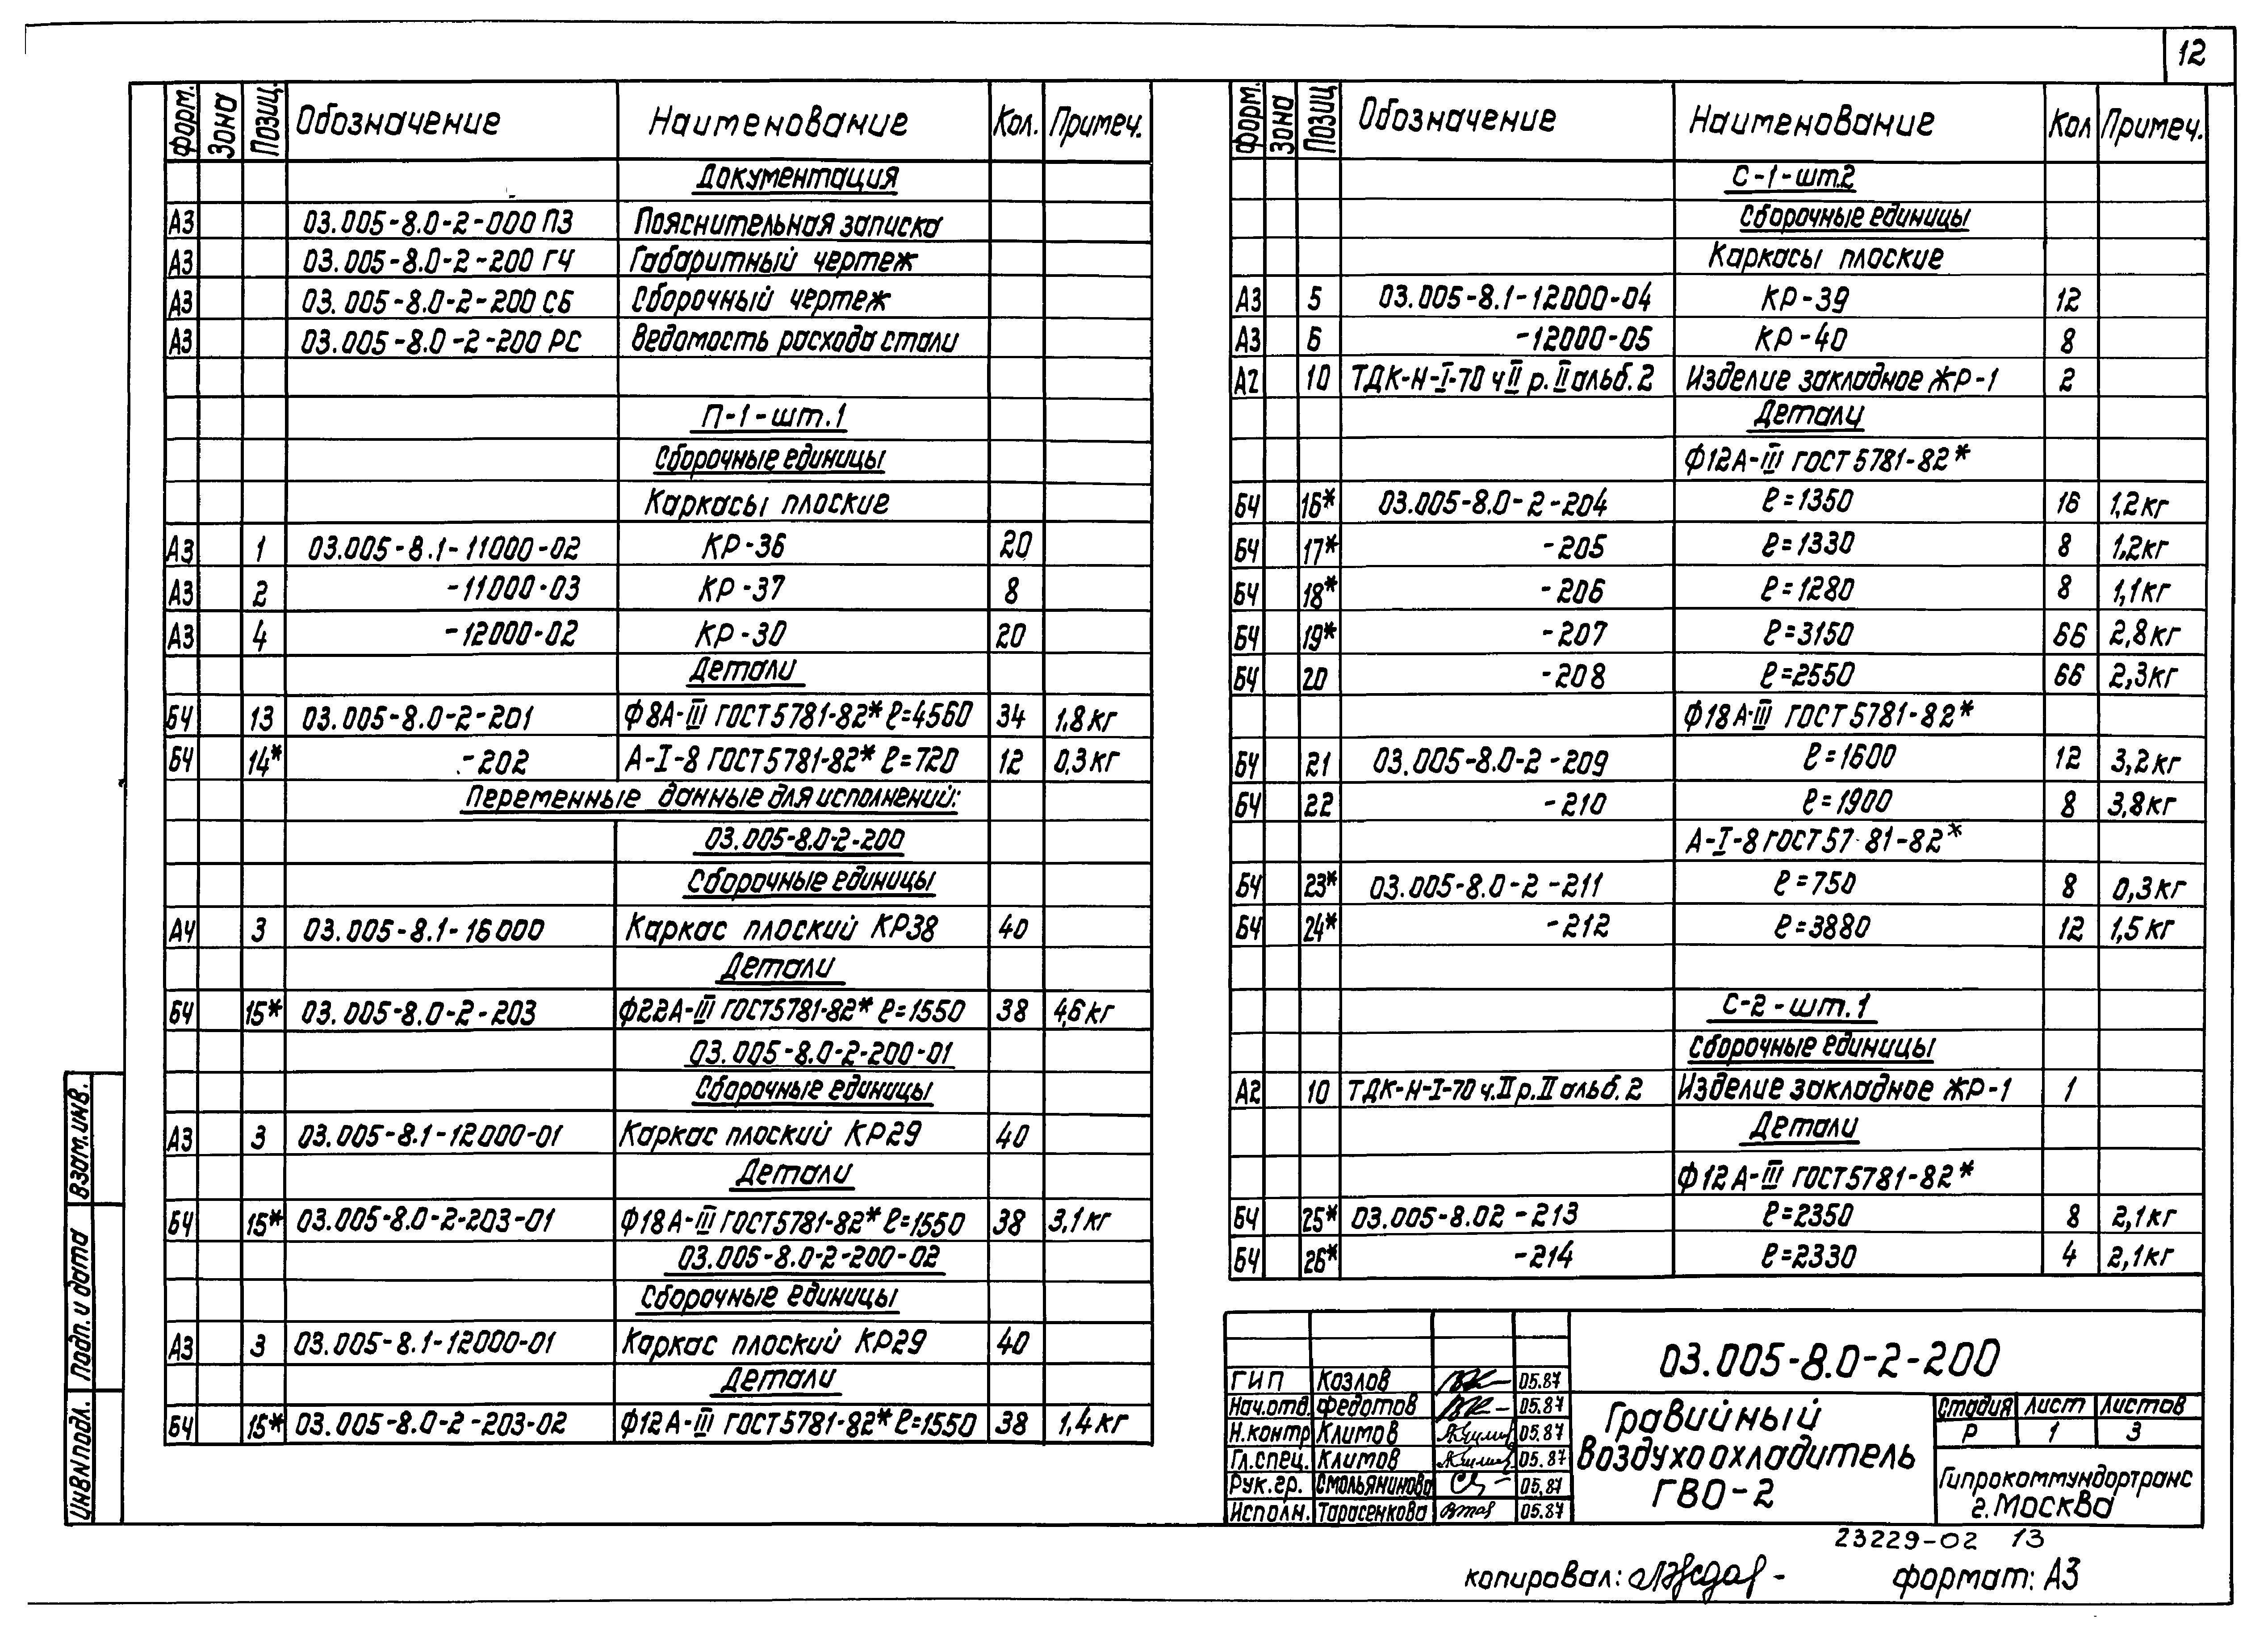 12
Форм. Зона Позиц. Обозначение Наименование Кол. Примеч.
Документация
А3 03.005-8.0-2-000 ПЗ Пояснительная записка
А3 03.005-8.0-2-200 ГЧ Габаритный чертеж
А3 03.005-8.0-2-200 СБ Сборочный чертеж
А3 03.005-8.0-2-200 РС Ведомость расхода стали
П-1-шт.1
Сборочные единицы
Каркасы плоские
А3 1 03.005-8.1-11000-02 КР-36 20
А3 2 -11000-03 КР-37 8
А3 4 -12000-02 КР-30 20
Детали
БЧ 13 03.005-8.0-2-201 Ф8А-III ГОСТ 5781-82* ℓ=4560 34 1,8кг
БЧ 14* -202 А-I-8 ГОСТ 5781-82* ℓ=720 12 0,3кг
Переменные данные для исполнений:
03.005-8.0-2-200
Сборочные единицы
А4 3 03.005-8.1-16000 Каркас плоский КР38 40
Детали
БЧ 15* 03.005-8.0-2-203 Ф22А-III ГОСТ 5781-82* ℓ=1550 38 4,6кг
03.005-8.0-2-200-01
Сборочные единицы
А3 3 03.005-8.1-12000-01 Каркас плоский КР29 40
Детали
БЧ 15* 03.005-8.0-2-203-01 Ф18А-III ГОСТ 5781-82* ℓ=1550 38 3,1кг
03.005-8.0-2-200-02
Сборочные единицы
А3 3 03.005-8.1-12000-01 Каркас плоский КР29 40
Детали
БЧ 15* 03.005-8.0-2-203-02 Ф12А-III ГОСТ 5781-82* ℓ=1550 38 1,4кг
Форм. Зона Позиц Обозначение Наименование Кол Примеч.
С-1-шт.2
Сборочные единицы
Каркасы плоские
А3 5 03.005-8.1-12000-04 КР-39 12
А3 6 -12000-05 КР-40 8
А2 10 ТДК-Н-I-70 ч II р. II альб. 2 Изделие закладное ЖР-1 2
Детали
Ф12А-III ГОСТ 5781-82*
БЧ 16* 03.005-8.0-2-204 ℓ=1350 16 1,2кг
БЧ 17* -205 ℓ=1330 8 1,2кг
БЧ 18* -206 ℓ=1280 8 1,1кг
БЧ 19* -207 ℓ=3150 66 2,8кг
БЧ 20 -208 ℓ=2550 66 2,3кг
Ф18А-III ГОСТ 5781-82*
БЧ 21 03.005-8.0-2-209 ℓ=1600 12 3,2кг
БЧ 22 -210 ℓ=1900 8 3,8кг
А-I-8 ГОСТ 57 81-82*
БЧ 23* 03.005-8.0-2-211 ℓ=750 8 0,3кг
БЧ 24* -212 ℓ=3880 12 1,5кг
С-2-шт.1
Сборочные единицы
А2 10 ТДК-Н-I-70 ч. II р. II альб. 2 Изделие закладное ЖР-1 1
Детали
Ф12А-III ГОСТ 5781-82*
БЧ 25* 03.005-8.02-213 ℓ=2350 8 2,1кг
БЧ 26* -214 ℓ=2330 4 2,1кг
Взам. инв.
Подп. и дата
Инв N подл.
ГИП Козлов 05.87
Нач.отд. Федотов 05.87
Н.контр Климов 05.87
Гл.спец. Климов 05.87
Рук.гр. Смольянинова 05.87
Исполн. Тарасенкова 05.87
03.005-8.0-2-200
Гравийный
воздухоохладитель
ГВО-2
Стадия Лист Листов
Р 1 3
Гипрокоммундортранс
г. Москва
23229-02 13
копировал: формат: А3